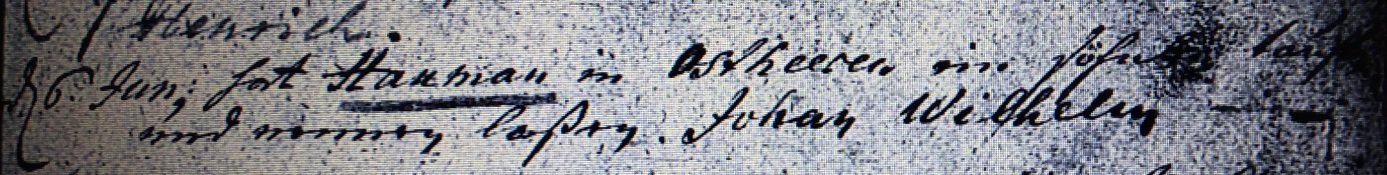 Henrich.
d 6. Juny hat Hauman in Ostheeren ein söhnl. tauf
und nennen laßen. Johan Wilhelm - -